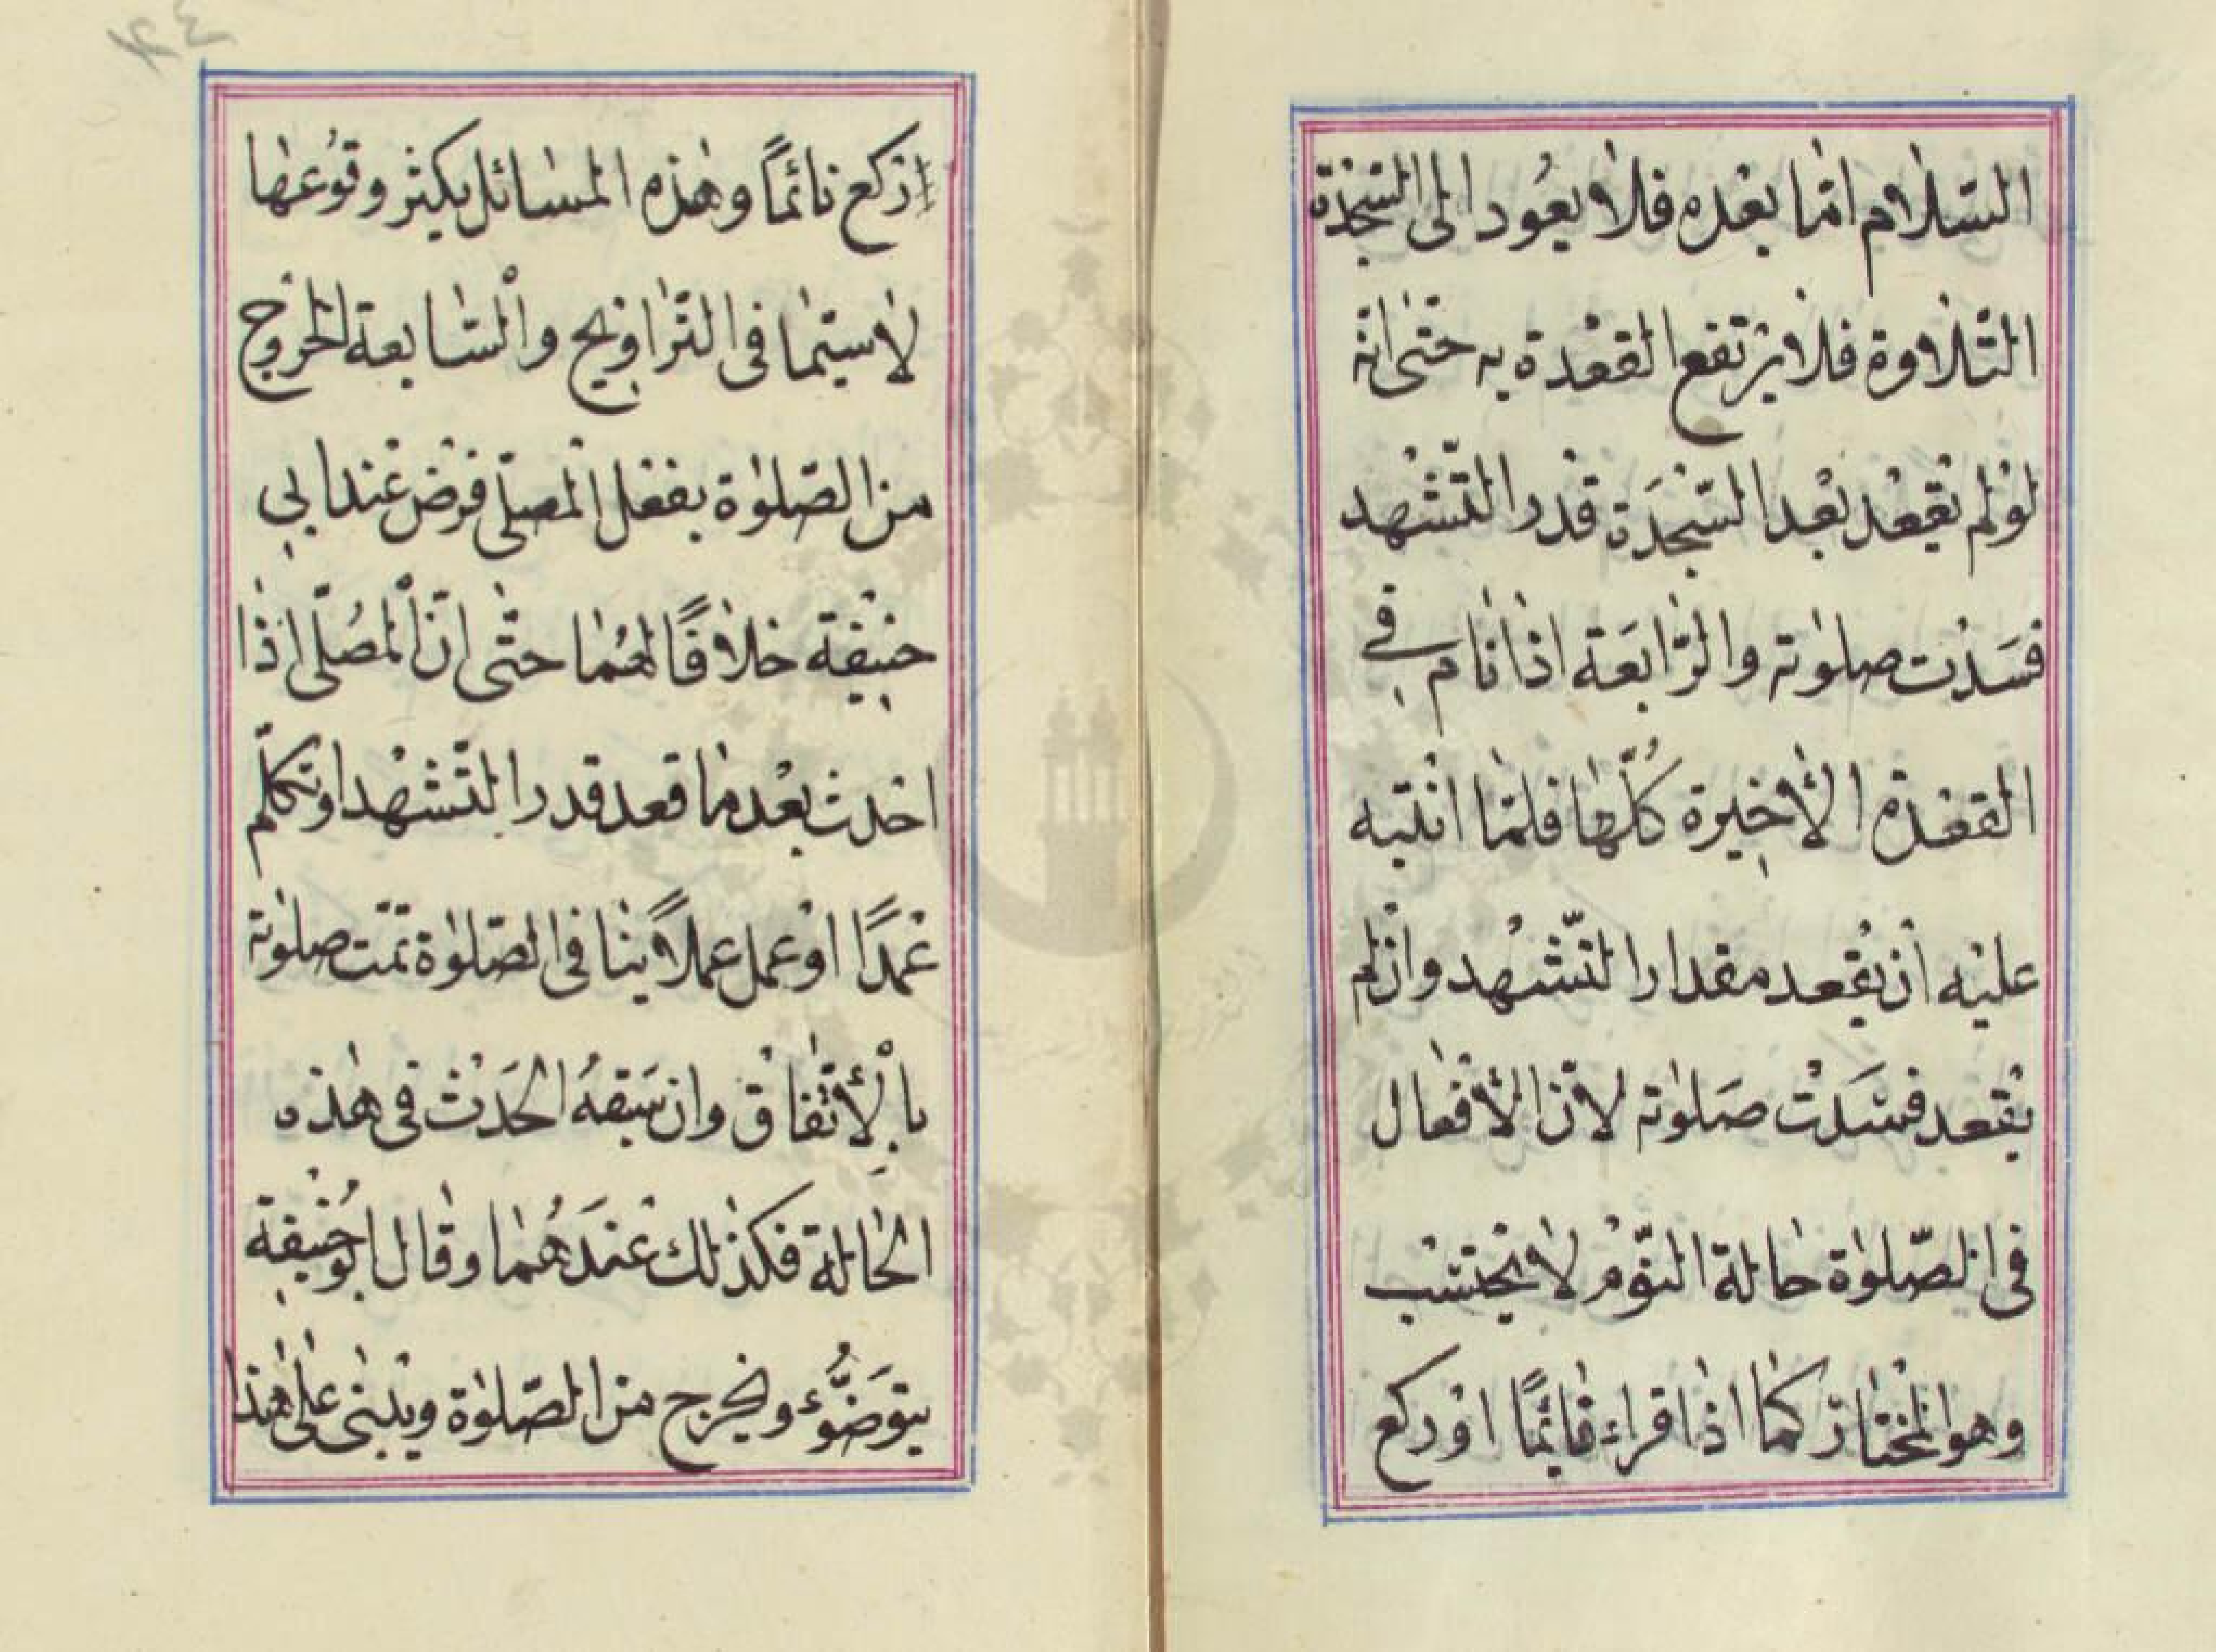 السّلام امّا بعده فلا يعود الى السّجدة
التّلاوة فلا يرتفع القعدة به حتى انّه
لو لم يقعد بعد السّجدة قدر التّشهد
فسدت صلوته والرّابعة اذا نام في
القعدة الأخيرة كلّها فلمّا انتبه
عليه أن يقعد مقدار التّشهد وان لم
يقعد فسدت صلوته لانّ الأفعال
فى الصّلوة حالة النّوم لا يحتسب
وهو المختار كما اذا قراء قائمًا او ركع
اركع نائمًا وهذه المسائل يكثر وقوعها
لا سيّما فى التّراويح والسّابعة الخروج
من الصّلوة بفعل المصلّى فرض عند ابي
حنيفة خلافًا لهما حتّى انّ المصلّى اذا
احدث بعد ما قعد قدر التّشهد او تكلّم
عمدًا او عمل عملاً ينا فى الصّلوة تمّت صلوته
بالأتّفاق وان سبقهُ الحدث فى هذه
الحالة فكذلك عندهما وقال ابو حنيفة
يتوضّوء ويخرج من الصّلوة ويبنى على هذا